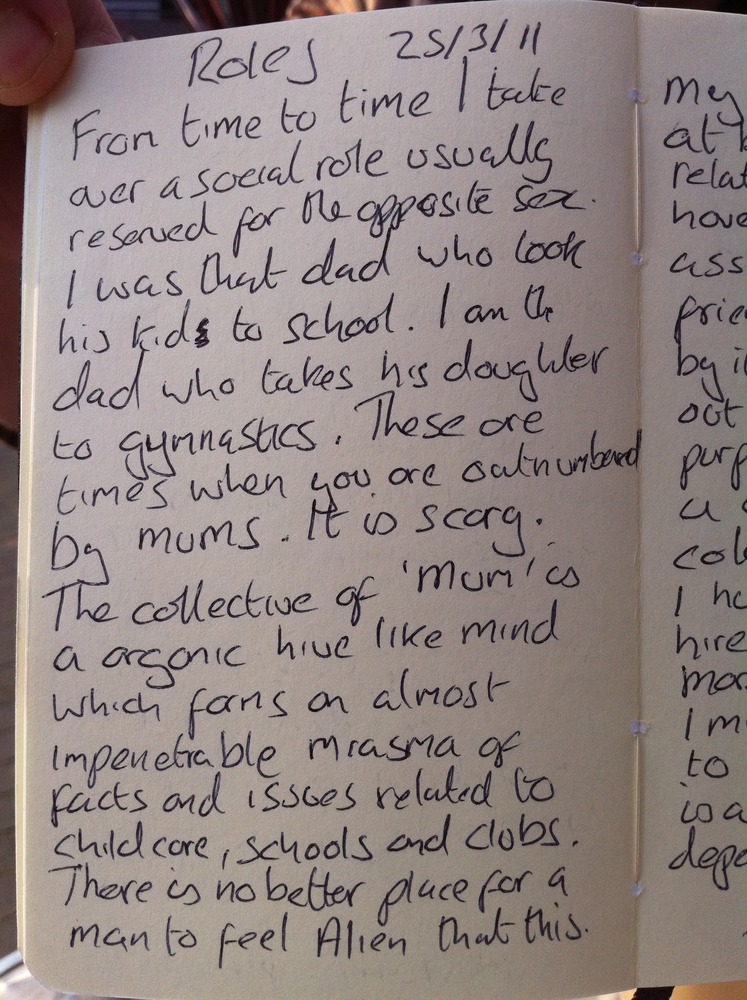 Roles 25/3/11
From time to time I take
over a social role usually
reserved for the opposite sex.
I was that dad who took
his kids to school. I am the
dad who takes his daughter
to gymnastics. These are
times when you are outnumbered
by mums. It is scary.
The collective of 'Mum' is
a organic hive like mind
which forms an almost
impenetrable miasma of
facts and issues related to
childcare, schools and clubs.
There is no better place for a
man to feel Alien that this.
my
at
relat
have
ass
frie
by i
out
purp
a
col
I ha
hire
mor
I m
to
is a
depe